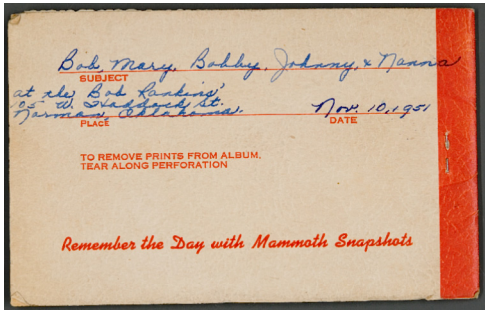 Bob, Mary, Bobby, Johnny, & Nanna
SUBJECT
at the Bob Rankins'
105 W. Haddock St.
Norman, Oklahoma.
Nov. 10, 1951
PLACE
DATE
TO REMOVE PRINTS FROM ALBUM,
TEAR ALONG PERFORATION
Remember the Day with Mammoth Snapshots